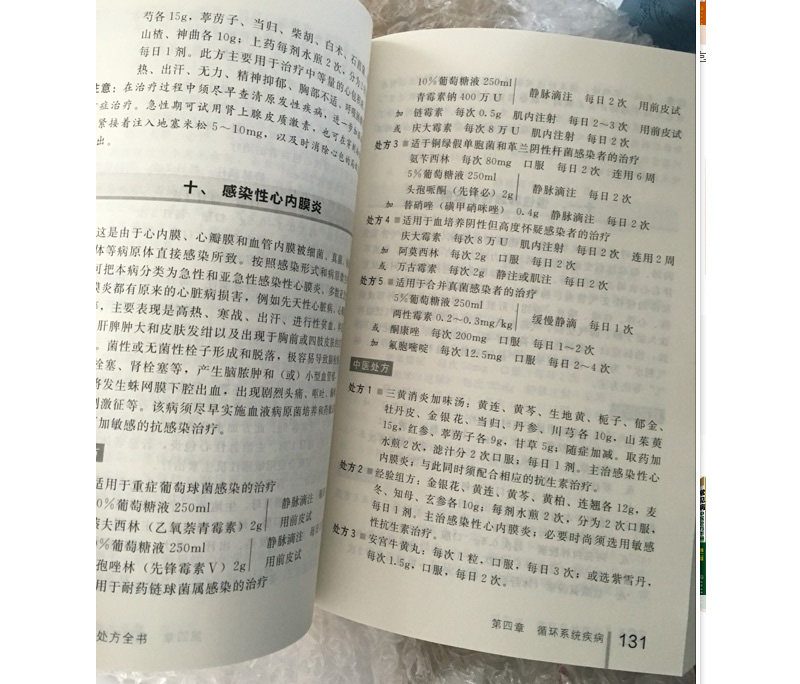 芎各15g，葶苈子、当归、柴胡、白术、石
山楂、神曲各10g；上药每剂水煎2次，分为
每日1剂。此方主要用于治疗中等量的心包
热、出汗、无力、精神抑郁、胸部不适、呼吸
注意：在治疗过程中须尽早查清原发性疾病，进一步
症治疗。急性期可试用肾上腺皮质激素，也可在
紧接着注入地塞米松5～10mg，以及时消除心包的
出。
十、感染性心内膜炎
这是由于心内膜、心瓣膜和血管内膜被细菌、真菌、
体等病原体直接感染所致。按照感染形式和病原
可把本病分类为急性和亚急性感染性心膜炎，多数
膜炎都有原来的心脏病损害，例如先天性心脏病、
主要表现是高热、寒战、出汗、进行性贫血、
肝脾肿大和皮肤发绀以及出现于胸前或四肢皮肤
菌性或无菌性栓子形成和脱落，极容易导致脑
栓塞、肾栓塞等，产生脑脓肿和（或）小型血管
将发生蛛网膜下腔出血，出现剧烈头痛、呕吐、
刺激征等。该病须尽早实施血液病原菌培养和药
加敏感的抗感染治疗。
适用于重症葡萄球菌感染的治疗
0%葡萄糖液250ml 静脉滴注 每
夫西林（乙氧萘青霉素）2g 用前皮试
%葡萄糖液250ml 静脉滴注 每日2
孢唑林（先锋霉素Ⅴ）2g 用前皮试
用于耐药链球菌属感染的治疗
处方全书
10%葡萄糖液250ml 静脉滴注 每日2次 用前皮试
青霉素钠400万U
加 链霉素 每次0.5g 肌内注射 每日2～3次 用前皮试
或 庆大霉素 每次8万U 肌内注射 每日2次
处方3 ■适于铜绿假单胞菌和革兰阴性杆菌感染者的治疗
氨苄西林 每次80mg 口服 每日2次 连用6周
5%葡萄糖液250ml 静脉滴注 每日2次
头孢哌酮（先锋必）2g
加 替硝唑（磺甲硝咪唑） 0.4g 静脉滴注 每日2次
处方4 ■适用于血培养阴性但高度怀疑感染者的治疗
庆大霉素 每次8万U 肌内注射 每日2次 连用2周
加 阿莫西林 每次2g 口服 每日2次
或 万古霉素 每次2g 静注或肌注 每日2次
处方5 ■适用于合并真菌感染者的治疗
5%葡萄糖液250ml 缓慢静滴 每日1次
两性霉素0.2～0.3mg/kg
或 酮康唑 每次200mg 口服 每日1～2次
加 氟胞嘧啶 每次12.5mg 口服 每日2～4次
中医处方
处方1 ■三黄消炎加味汤：黄连、黄芩、生地黄、栀子、郁金、
牡丹皮、金银花、当归、丹参、川芎各10g，山茱萸
15g，红参、葶苈子各9g，甘草5g；随症加减。取药加
水煎2次，滤汁分2次口服；每日1剂。主治感染性心
内膜炎；与此同时须配合相应的抗生素治疗。
处方2 ■经验组方：金银花、黄连、黄芩、黄柏、连翘各12g，麦
冬、知母、玄参各10g；每剂水煎2次，分为2次口服，
每日1剂。主治感染性心内膜炎；必要时尚须选用敏感
性抗生素治疗。
处方3 ■安宫牛黄丸：每次1粒，口服，每日3次；或选紫雪丹，
每次1.5g，口服，每日2次。
第四章 循环系统疾病 131